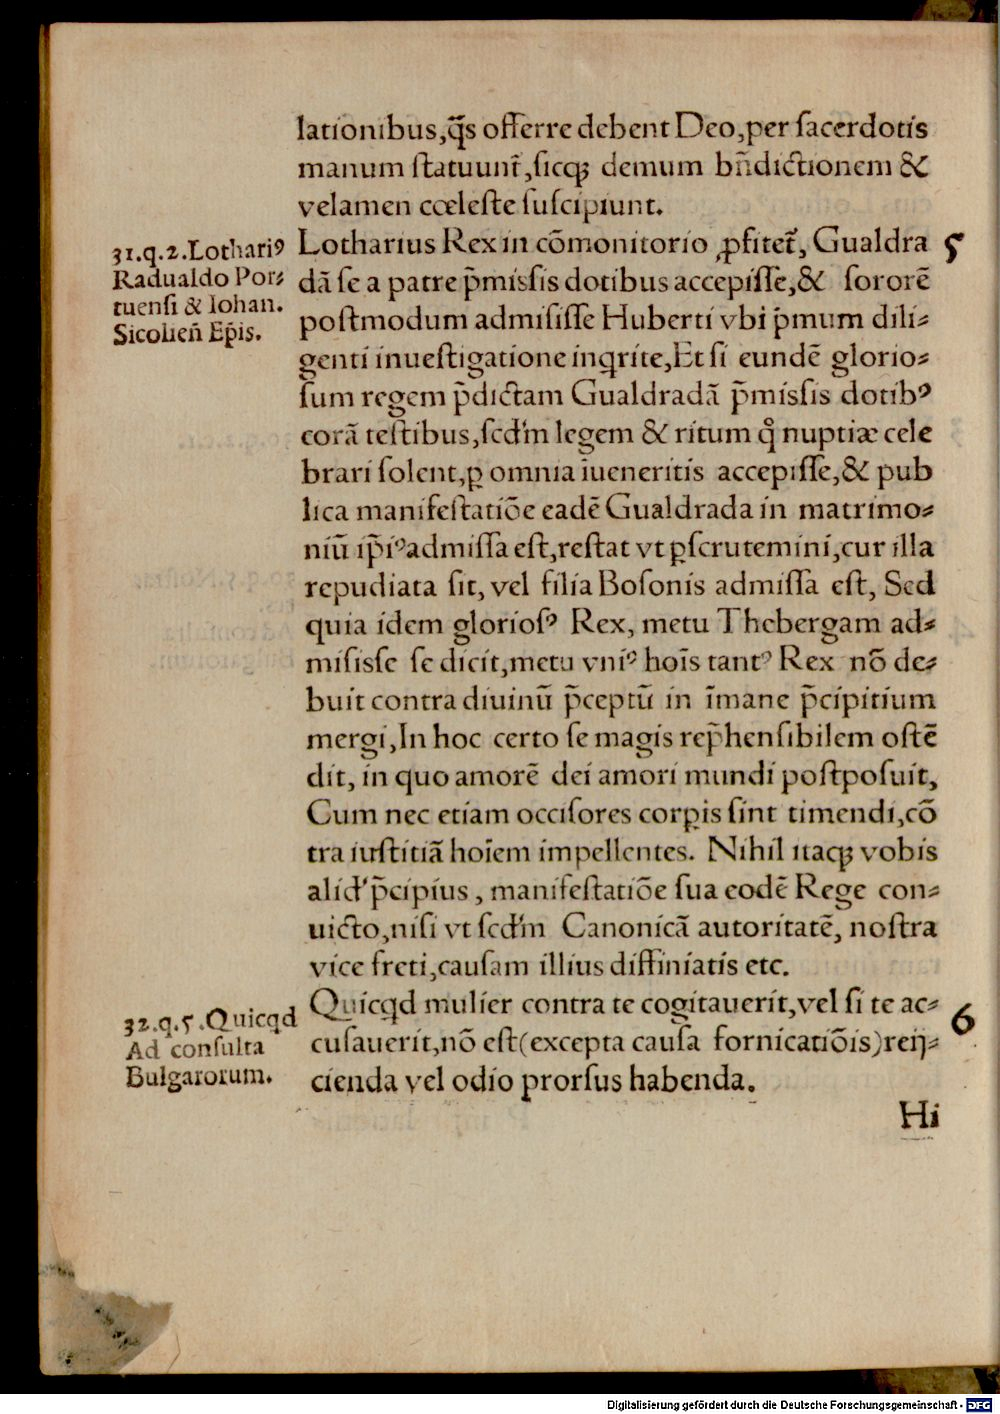 lationibus,q̃s offerre debent Deo,per sacerdotis
manum statuunt̃,sicqꝫ demum bñdictionem &
velamen cœleste suscipiunt.
31.q.2.Lothariꝰ
Radualdo Por⸗
tuensi & Iohan.
Sicolieñ Ep̃is.
Lotharius Rex in cõmonitorio ꝓfitet̃, Gualdra
dã se a patre p̃missis dotibus accepisse,& sororẽ
postmodum admisisse Huberti vbi p̃mum dili⸗
genti inuestigatione inqrite,Et si eundẽ glorio⸗
sum regem p̃dictam Gualdradã p̃missis dotibꝰ
corã testibus,scd'm legem & ritum qͦ nuptiæ cele
brari solent,ꝑ omnia iũeneritis accepisse,& pub
lica manifestatiõe eadẽ Gualdrada in matrimo⸗
niũ ip̃iꝰ admissa est,restat vt ꝑscrutemini,cur illa
repudiata sit, vel filia Bosonis admissa est, Sed
quia idem gloriosꝰ Rex, metu Thebergam ad⸗
misisse se dicit,metu vniꝰ hoĩs tantꝰ Rex nõ de⸗
buit contra diuinũ p̃ceptũ in ĩmane p̃cipitium
mergi,In hoc certo se magis rep̃hensibilem ostẽ
dit, in quo amorẽ dei amori mundi postposuit,
Cum nec etiam occisores corꝑis sint timendi,cõ
tra iustitiã hoĩem impellentes. Nihil itaqꝫ vobis
aliď p̃cipius, manifestatiõe sua eodẽ Rege con⸗
uicto,nisi vt scd'm Canonicã autoritatẽ, nostra
vice freti,causam illius diffiniatis etc.
32.q.5.Quicqd
Ad consulta
Bulgarorum.
Quicqd mulier contra te cogitauerit,vel si te ac⸗
cusauerit,nõ est(excepta causa fornicatiõis)reij⸗
cienda vel odio prorsus habenda.
5
6
Hi
Digitalisierung gefördert durch die Deutsche Forschungsgemeinschaft - DFG